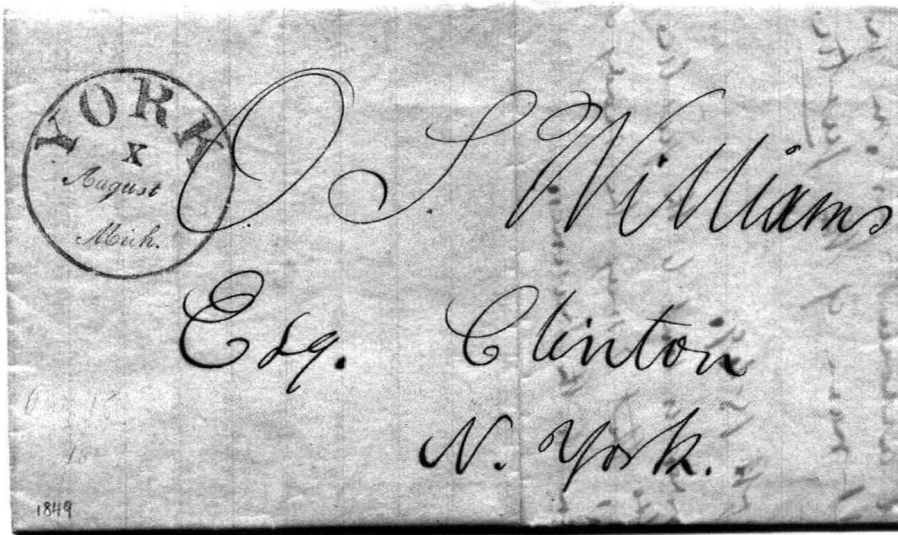 YORK
X
August
Mich.
O S Williams
Esq. Clinton
N. York.
1849